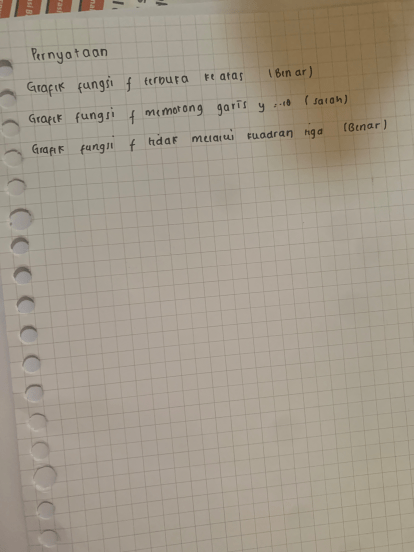 Pernyataan
Grafik fungsi f terbuka ke atas (Benar)
Grafik fungsi f memotong garis y = -10 (salah)
Grafik fungsi f tidak melalui kuadran tiga (Benar)